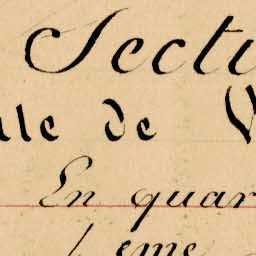 Secti
lle de V
En quar
eme